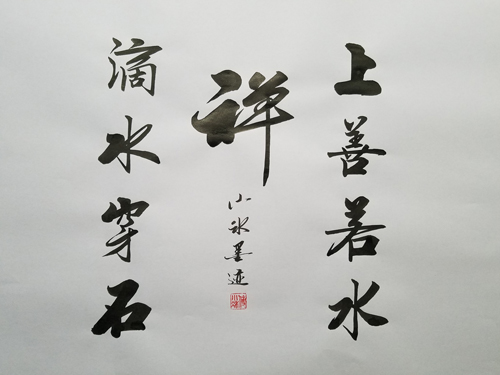 上善若水
祥
小水墨迹
滴水穿石